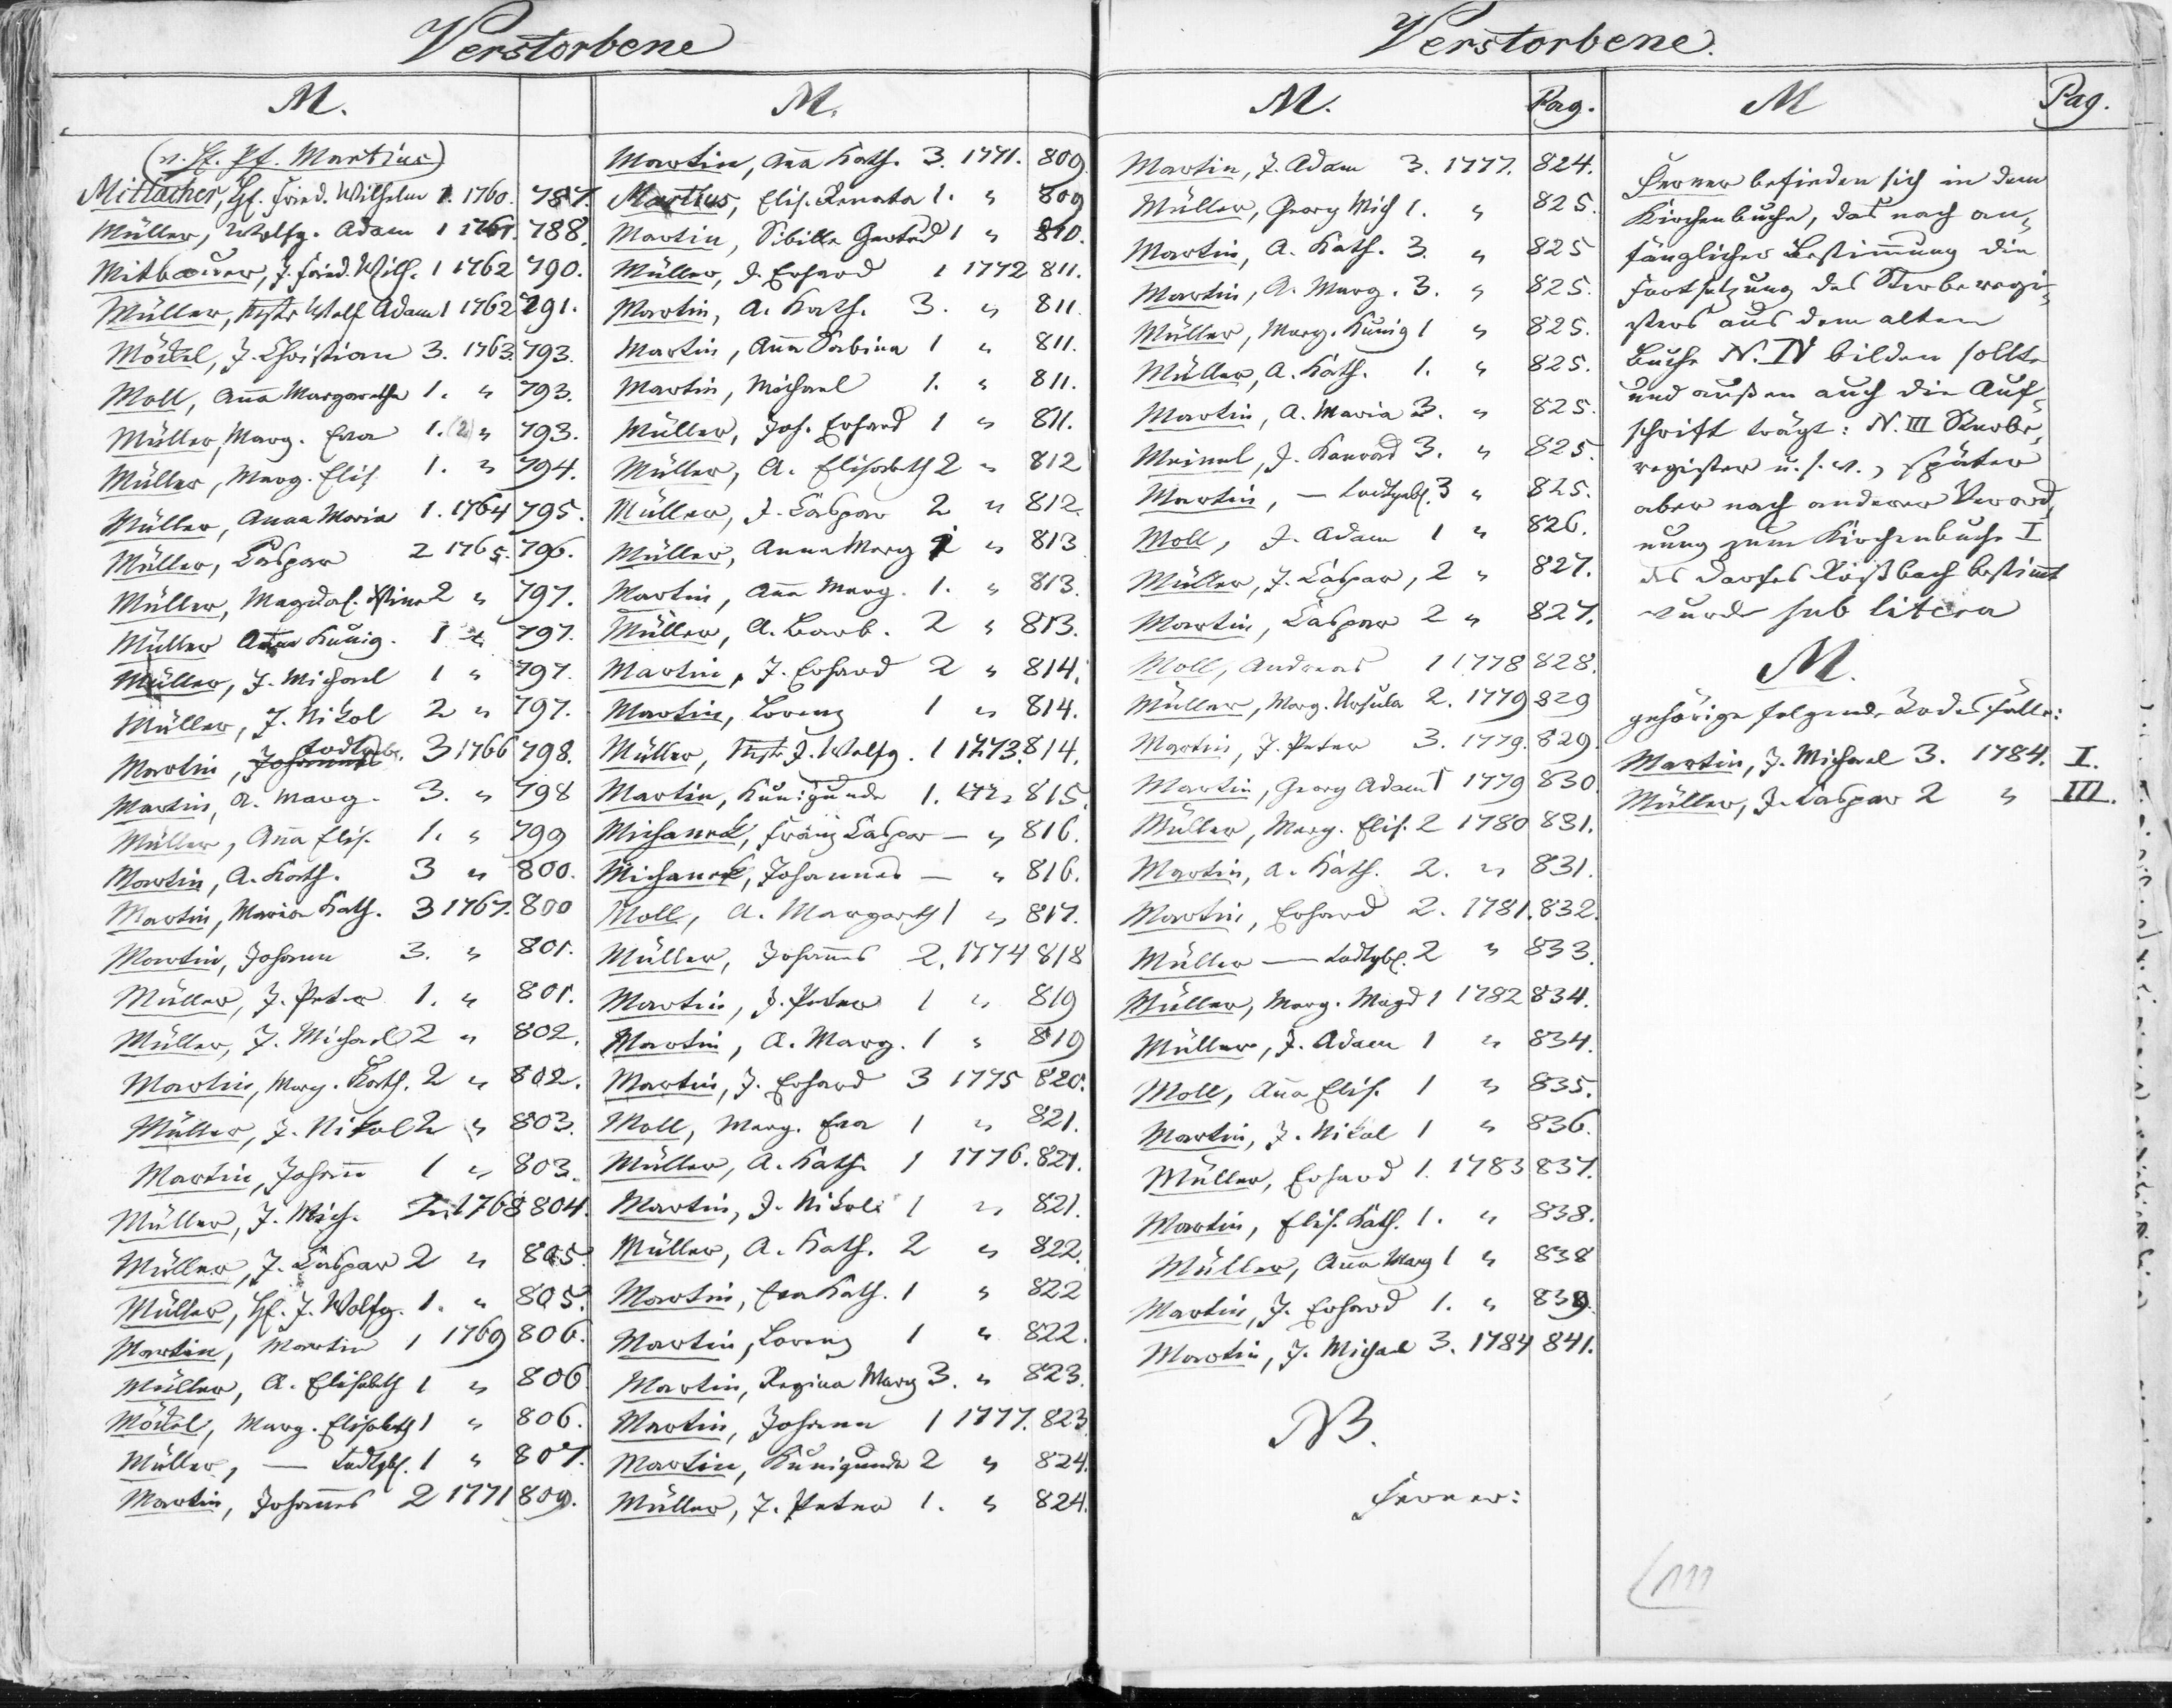 Verstorbene
M.
(v. H. Pf. Martius)
Mitlacher, H. Fried. Wilhelm 1. 1760. 787.
Müller, Wolfg. Adam 1 1761. 788.
Mitbauer, J. Fried. Wilh. 1 1762 790.
Müller, Wolf Adam 1 1762 791.
Möckel, J. Christian 3. 1763. 793.
Moll, Ana Margaretha 1. " 793.
Müller, Marg. Eva 1. (2) " 793.
Müller, Marg. Elis. 1. " 794.
Müller, Anna Maria 1. 1764 795.
Müller, Caspar 2 1765. 796.
Müller, Magdal. 2 " 797.
Müller Anna Kunig. 1 " 797.
Müller, J. Michael 1 " 797.
Müller, J. Nikol 2 " 797.
Martin, Johannes todtgeb. 3 1766 798.
Martin, A. Marg. 3. " 798
Müller, Ana Elis. 1. " 799
Martin, A. Kath. 3 " 800.
Martin, Maria Kath. 3 1767. 800
Martin, Johann 3. " 801.
Müller, J. Peter 1. " 801.
Müller, J. Michael 2 " 802.
Martin, Marg. Kath. 2 " 802.
Müller, J. Nikol 2 " 803.
Martin, Johan 1 " 803.
Müller, J. Mich. 1768 804.
Müller, J. Caspar 2 " 805.
Müller, H. J. Wolfg. 1. " 805.
Martin, Martin 1 1769 806.
Müller, A. Elisabeth 1 " 806
Möckel, Marg. Elisabeth 1 " 806.
Müller, — todtgb. 1 " 807.
Martin, Johanes 2 1771 809.
M.
Martin, Ana Kath. 3. 1771. 809.
Martius, Elis. Renata 1. " 809
Martin, Sibilla Gertrud 1 " 810.
Müller, J. Erhard 1 1772 811.
Martin, A. Kath. 3. " 811.
Martin, Ana Sabina 1 " 811.
Martin, Michael 1. " 811.
Müller, Joh. Erhard 1 " 811.
Müller, A. Elisabeth 2 " 812
Müller, J. Caspar 2 " 812.
Müller, Anna Marg " 813
Martin, Ana Marg. 1. " 813.
Müller, A. Barb. 2 " 813.
Martin, J. Erhard 2 " 814.
Martin, Lorenz 1 " 814.
Müller, J. Wolfg. 1 1773. 814.
Martin, Kunigunde 1. 815.
Michaneck, Franz Caspar — " 816.
Michaneck, Johannes — " 816.
Moll, A. Margareth 1 " 817.
Müller, Johanes 2. 1774 818
Martin, J. Peter 1 " 819
Martin, A. Marg. 1 " 819
Martin, J. Erhard 3 1775 820.
Moll, Marg. Eva 1 " 821.
Müller, A. Kath. 1 1776. 821.
Martin, J. Nikol. 1 " 821.
Müller, A. Kath. 2 " 822.
Martin, Eva Kath. 1 " 822
Martin, Lorenz 1 " 822.
Martin, Regina Marg 3. " 823.
Martin, Johann 1 1777. 823
Martin, Kunigunda 2 " 824.
Müller, J. Peter 1. " 824.
Verstorbene.
M. Pag.
Martin, J. Adam 3. 1777. 824.
Müller, Georg Mich 1. " 825.
Martin, A. Kath. 3. " 825
Martin, A. Marg. 3. " 825.
Müller, Marg. Kunig 1 " 825.
Müller, A. Kath. 1. " 825.
Martin, A. Maria 3. " 825.
Meinel, J. Konrad 3. " 825.
Martin, — todtgeb. 3 " 825.
Moll, J. Adam 1 " 826.
Müller, J. Caspar, 2 " 827.
Martin, Caspar 2 " 827.
Moll, Andreas 1 1778 828.
Müller, Marg. Ursula 2. 1779 829
Martin, J. Peter 3. 1779. 829.
Martin, Georg Adam 1 1779 830.
Müller, Marg. Elis. 2 1780 831.
Martin, A. Kath. 2. " 831.
Martin, Erhard 2. 1781. 832.
Müller — todtgb. 2 " 833.
Müller, Marg. Magd 1 1782 834.
Müller, J. Adam 1 " 834.
Moll, Ana Elis. 1 " 835.
Martin, J. Nikol 1 " 836.
Müller, Erhard 1. 1783 837.
Martin, Elis. Kath. 1. " 838.
Müller, Ana Marg 1 " 838
Martin, J. Erhard 1. " 839.
Martin, J. Michael 3. 1784 841.
NB.
Ferner:
M Pag.
Ferner befinden sich in dem
Kirchenbuche, das nach an-
fänglicher Bestimung die
Fortsetzung des Sterberegi-
sters aus dem alten
Buche N. IV bilden sollte
und außen auch die Auf-
schrift trägt: N. III Sterbe-
register u. s. w., später
aber nach anderer Verord-
nung zum Kirchenbuche I
des Dorfes Roßbach bestimt
wurde sub litera
M.
gehörige folgende Todesfälle:
Martin, J. Michael 3. 1784. I.
Müller, J. Caspar 2 " III.